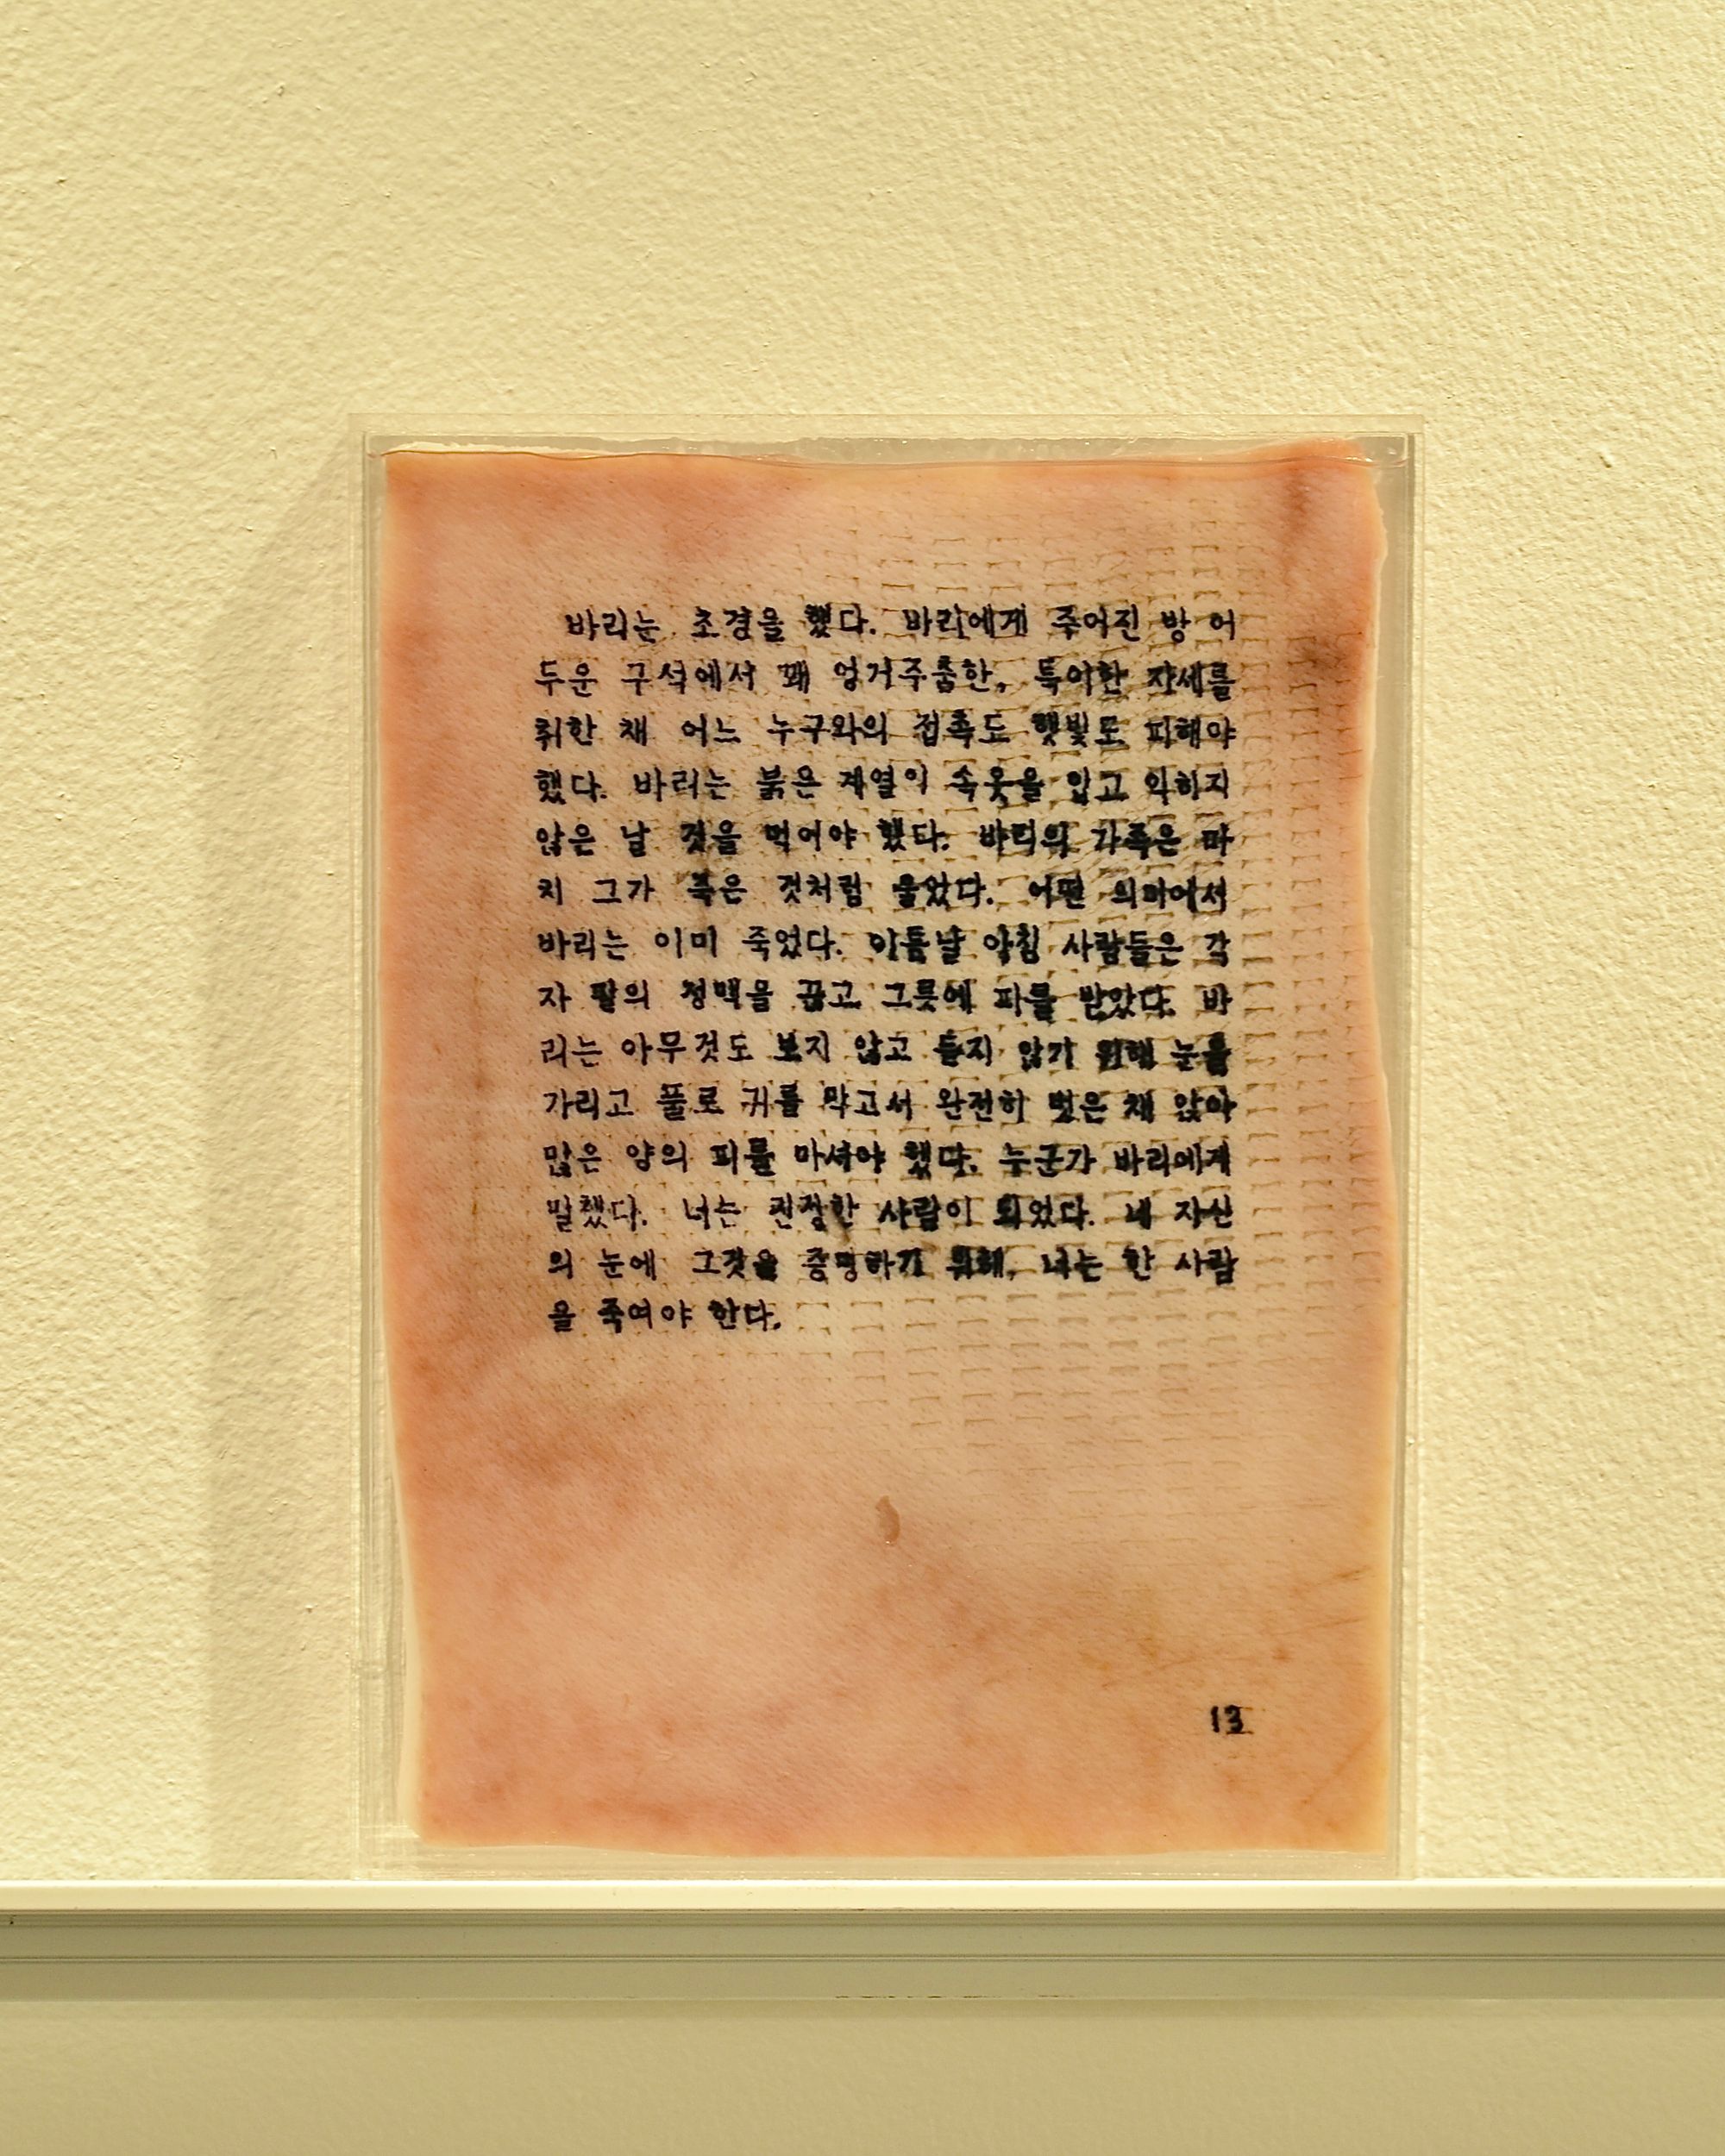 바리는 초경을 했다. 바리에게 주어진 방 어
두운 구석에서 꽤 엉거주춤한, 특이한 자세를
취한 채 어느 누구와의 접촉도 햇빛도 피해야
했다. 바리는 붉은 계열의 속옷을 입고 익히지
않은 날 것을 먹어야 했다. 바리의 가족은 마
치 그가 죽은 것처럼 울었다. 어떤 의미에서
바리는 이미 죽었다. 이튿날 아침 사람들은 각
자 팔의 정맥을 끊고 그릇에 피를 받았다. 바
리는 아무것도 보지 않고 듣지 않기 위해 눈을
가리고 풀로 귀를 막고서 완전히 벗은 채 앉아
많은 양의 피를 마셔야 했다. 누군가 바리에게
말했다. 너는 진정한 사람이 되었다. 네 자신
의 눈에 그것을 증명하기 위해, 너는 한 사람
을 죽여야 한다.
13